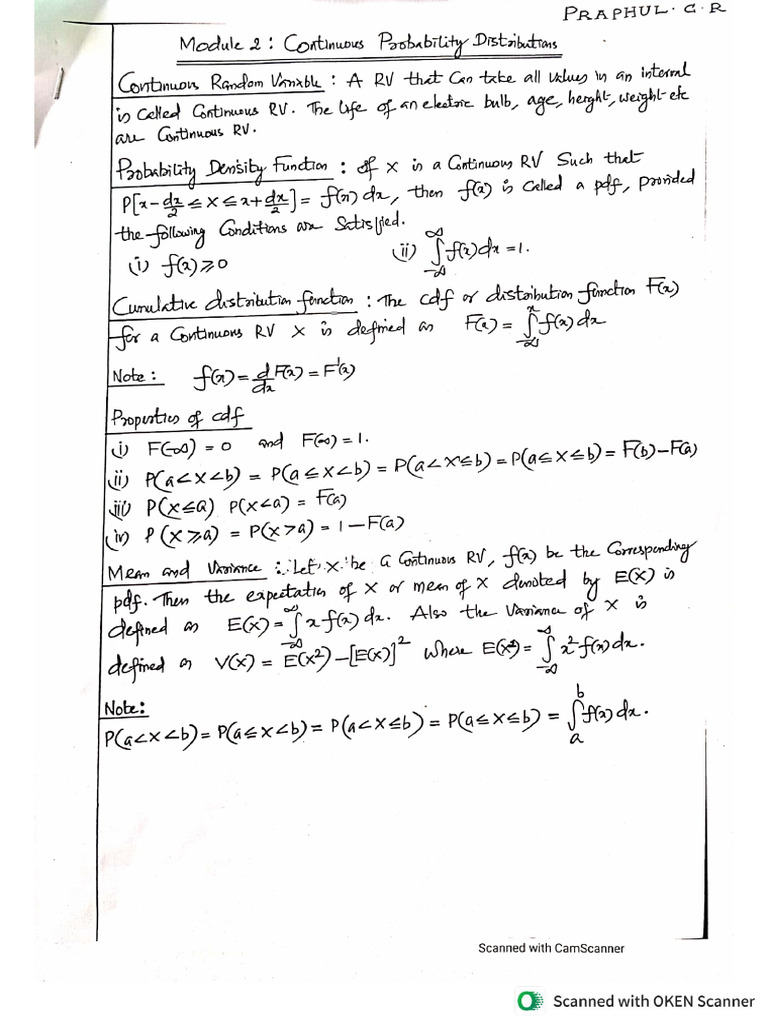 PRAPHUL. C. R
Module 2 : Continuous Probability Distributions
Continuous Random Variable : A RV that Can take all values in an interval
is Called Continuous RV. The life of an electric bulb, age, height, weight etc
are Continuous RV.
Probability Density Function : If X is a Continuous RV Such that
P[x - dx/2 ≤ X ≤ x + dx/2] = f(x) dx, then f(x) is Called a pdf, provided
the following Conditions are Satisfied.
(i) f(x) ≥ 0 (ii) ∫_{-∞}^{∞} f(x) dx = 1.
Cumulative distribution function : The cdf or distribution function F(x)
for a Continuous RV X is defined as F(x) = ∫_{-∞}^{x} f(x) dx
Note : f(x) = d/dx F(x) = F'(x)
Properties of cdf
i) F(-∞) = 0 and F(∞) = 1.
ii) P(a<X<b) = P(a≤X<b) = P(a<X≤b) = P(a≤X≤b) = F(b) - F(a)
iii) P(X≤a) P(X<a) = F(a)
iv) P(X≥a) = P(X>a) = 1 - F(a)
Mean and Variance : Let X be a Continuous RV, f(x) be the Corresponding
pdf. Then the expectation of X or mean of X denoted by E(X) is
defined as E(X) = ∫_{-∞}^{∞} x f(x) dx. Also the Variance of X is
defined as V(X) = E(X²) - [E(X)]² where E(X²) = ∫_{-∞}^{∞} x² f(x) dx.
Note:
P(a<X<b) = P(a≤X<b) = P(a<X≤b) = P(a≤X≤b) = ∫_{a}^{b} f(x) dx.
Scanned with CamScanner
Scanned with OKEN Scanner